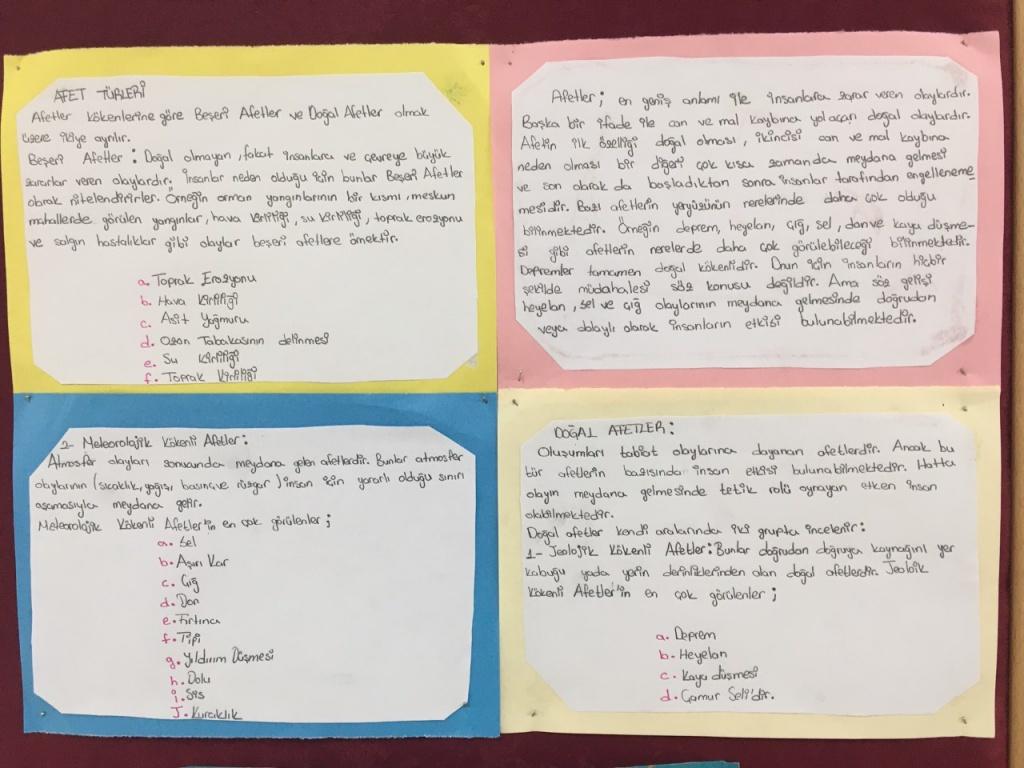 AFET TÜRLERİ
Afetler kökenlerine göre Beşeri Afetler ve Doğal Afetler olmak
üzere ikiye ayrılır.
Beşeri Afetler: Doğal olmayan, fakat insanlara ve çevreye büyük
zararlar veren olaylardır. İnsanlar neden olduğu için bunlar "Beşeri Afetler
olarak nitelendirirler. Örneğin orman yangınlarının bir kısmı, meskun
mahallerde görülen yangınlar, hava kirliliği, su kirliliği, toprak erozyonu
ve salgın hastalıklar gibi olaylar beşeri afetlere örnektir.
a. Toprak Erozyonu
b. Hava Kirliliği
c. Asit Yağmuru
d. Ozon Tabakasının delinmesi
e. Su Kirliliği
f. Toprak Kirliliği
Afetler; en geniş anlamı ile insanlara zarar veren olaylardır.
Başka bir ifade ile can ve mal kaybına yol açan doğal olaylardır.
Afetin ilk özelliği doğal olması, ikincisi can ve mal kaybına
neden olması bir diğeri çok kısa zamanda meydana gelmesi
ve son olarak da başladıktan sonra insanlar tarafından engelleneme
mesidir. Bazı afetlerin yeryüzünün nerelerinde daha çok olduğu
bilinmektedir. Örneğin deprem, heyelan, çığ, sel, don ve kaya düşme-
si gibi afetlerin nerelerde daha çok görülebileceği bilinmektedir.
Depremler tamamen doğal kökenlidir. Onun için insanların hiçbir
şekilde müdahalesi söz konusu değildir. Ama söz gelişi
heyelan, sel ve çığ olaylarının meydana gelmesinde doğrudan
veya dolaylı olarak insanların etkisi bulunabilmektedir.
2- Meteorolojik Kökenli Afetler:
Atmosfer olayları sonucunda meydana gelen afetlerdir. Bunlar atmosfer
olaylarının (sıcaklık, yağış, basınç ve rüzgar) insan için yararlı olduğu sınırın
aşamasıyla meydana gelir.
Meteorolojik Kökenli Afetler'in en çok görülenler;
a. Sel
b. Aşırı Kar
c. Çığ
d. Don
e. Fırtına
f. Tipi
g. Yıldırım Düşmesi
h. Dolu
i. Sis
J. Kuraklık
DOĞAL AFETLER:
Oluşumları tabiat olaylarına dayanan afetlerdir. Ancak bu
tür afetlerin bazısında insan etkisi bulunabilmektedir. Hatta
olayın meydana gelmesinde tetik rolü oynayan etken insan
olabilmektedir.
Doğal afetler kendi aralarında iki grupta incelenir:
1- Jeolojik Kökenli Afetler: Bunlar doğrudan doğruya kaynağını yer
kabuğu yada yerin derinliklerinden alan doğal afetlerdir. Jeolik
Kökenli Afetler'in en çok görülenler;
a. Deprem
b. Heyelan
c. Kaya düşmesi
d. Çamur Seli'dir.